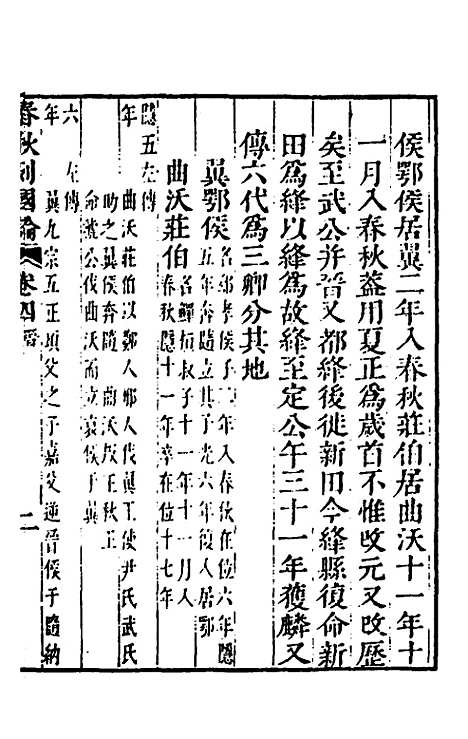 侯鄂侯居翼二年入春秋莊伯居曲沃十一年十
一月入春秋葢用夏正爲歲首不惟改元又改歷
矣至武公并晉又都絳後徙新田今絳縣復命新
田爲絳以絳爲故絳至定公午三十一年獲麟又
傳六代爲三卿分其地
翼鄂侯名郄孝侯子二年入春秋在位六年隱
五年奔隨立其子光六年復入居鄂
曲沃莊伯名鱓桓叔子十一年十一月入
春秋隱十一年卒在位十七年
隱五左傳曲沃莊伯以鄭人邢人伐翼王使尹氏武氏
年助之翼侯奔隨 曲沃叛王秋王
命虢公伐曲沃而立哀侯于翼
六 左傳
年翼九宗五正頃父之子嘉父逆晉侯于隨納
春秋列國論 卷四 晉 二